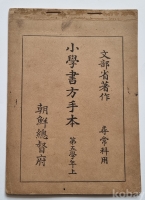 文部省著作
尋常科用
小學書方手本 第六學年上
朝鮮總督府